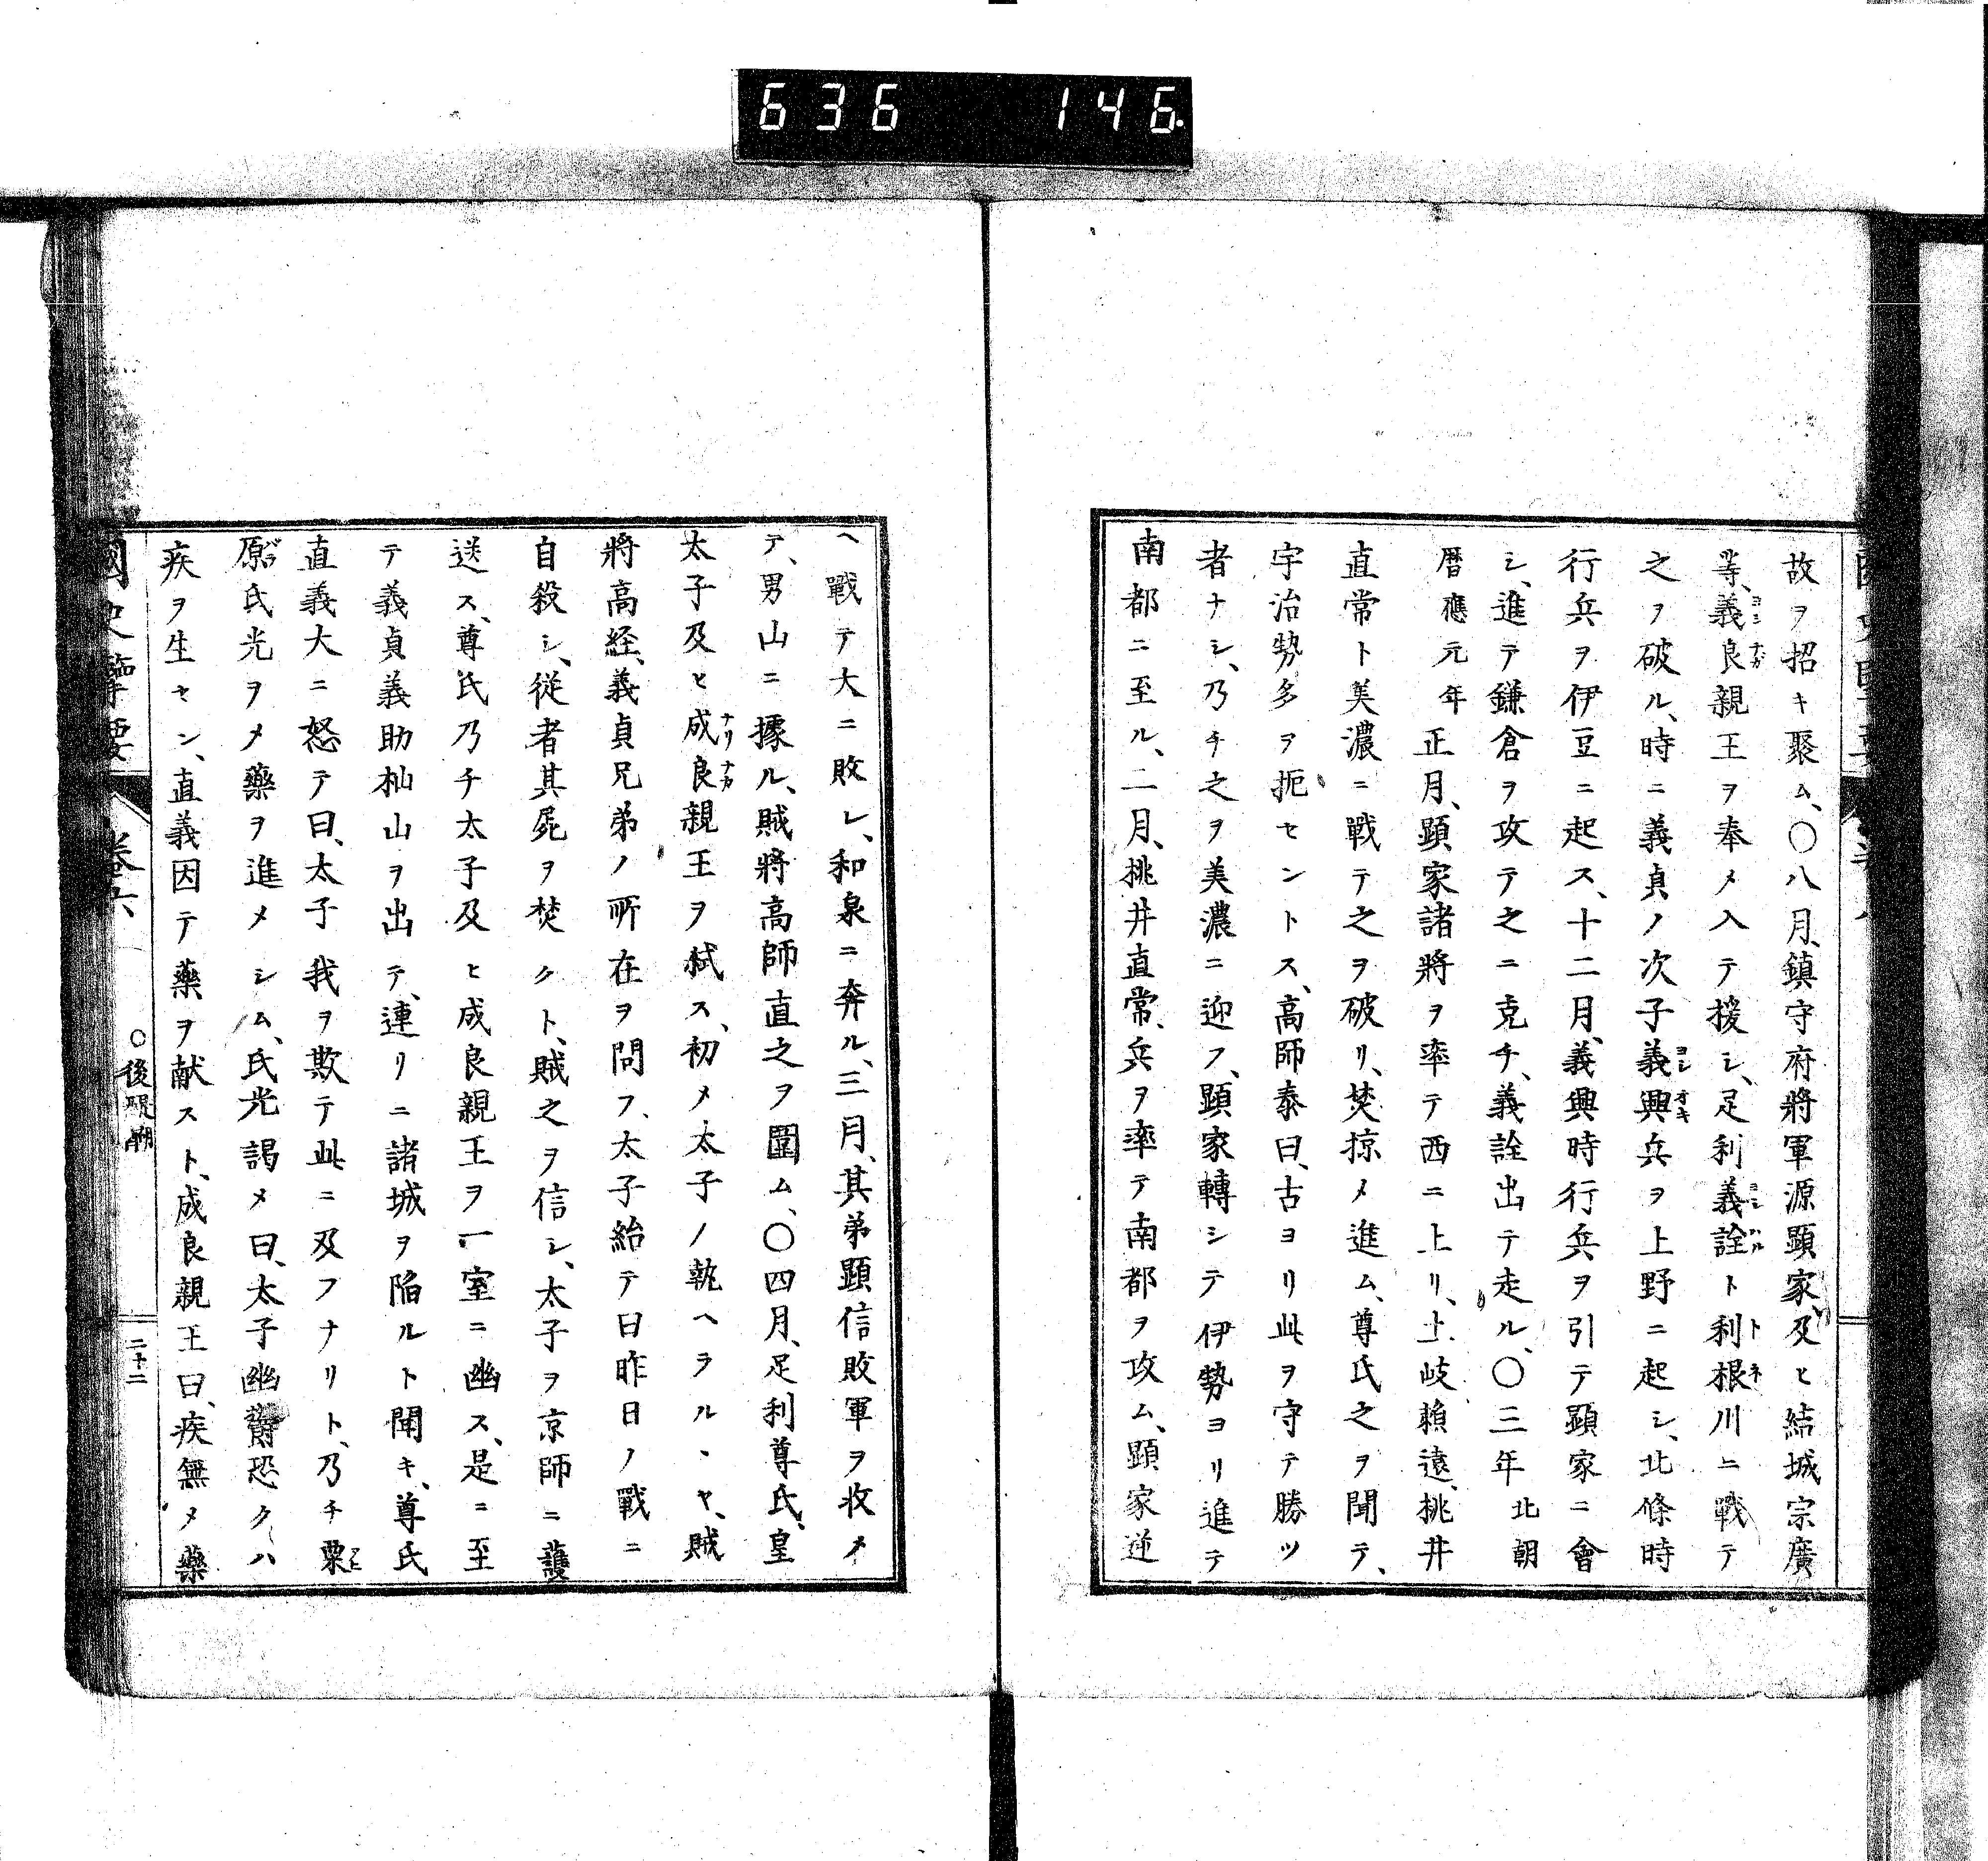 636 146.
故ヲ招キ聚ム、〇八月、鎮守府將軍源顕家、及ヒ結城宗廣
等、義良親王ヲ奉メ入テ援シ、足利義詮ト利根川ニ戰テ
之ヲ破ル、時ニ義貞ノ次子義興兵ヲ上野ニ起シ、北條時
行兵ヲ伊豆ニ起ス、十二月、義興時行兵ヲ引テ顕家ニ會
シ、進テ鎌倉ヲ攻テ之ニ克チ、義詮出テ走ル、〇三年北朝
暦應元年正月、顕家諸將ヲ率テ西ニ上リ、土岐頼遠、桃井
直常ト美濃ニ戰テ之ヲ破リ、焚掠メ進ム、尊氏之ヲ聞テ、
宇治勢多ヲ扼セントス、高師泰曰、古ヨリ此ヲ守テ勝ツ
者ナシ、乃チ之ヲ美濃ニ迎フ、顕家轉シテ伊勢ヨリ進テ
南都ニ至ル、二月、桃井直常、兵ヲ率テ南都ヲ攻ム、顕家逆
ヘ戰テ大ニ敗レ、和泉ニ奔ル、三月、其弟顕信敗軍ヲ收メ
テ、男山ニ據ル、賊將高師直之ヲ圍ム、〇四月、足利尊氏、皇
太子及ヒ成良親王ヲ弑ス、初メ太子ノ執ヘラルヽヤ、賊
將高経、義貞兄弟ノ所在ヲ問フ、太子紿テ曰昨日ノ戰ニ
自殺シ、從者其屍ヲ焚クト、賊之ヲ信シ、太子ヲ京師ニ護
送ス、尊氏乃チ太子及ヒ成良親王ヲ一室ニ幽ス、是ニ至
テ義貞義助杣山ヲ出テ、連リニ諸城ヲ陥ルト聞キ、尊氏
直義大ニ怒テ曰、太子我ヲ欺テ此ニ及フナリト、乃チ粟
原氏光ヲメ藥ヲ進メシム、氏光謁メ曰、太子幽欝恐クハ
疾ヲ生セン、直義因テ藥ヲ献スト、成良親王曰、疾無メ藥
國史擥要 卷六 〇後醍醐 二十二